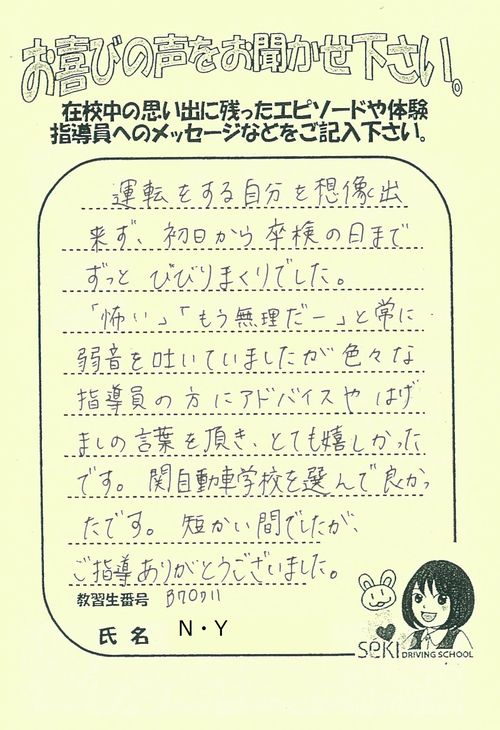 お喜びの声をお聞かせ下さい。
在校中の思い出に残ったエピソードや体験
指導員へのメッセージなどをご記入下さい。
運転をする自分を想像出
来ず、初日から卒検の日まで
ずっと びびりまくりでした。
「怖い」「もう無理だー」と常に
弱音を吐いていましたが色々な
指導員の方にアドバイスや はげ
ましの言葉を頂き、とても嬉しかった
です。関自動車学校を選んで良かっ
たです。短かい間でしたが、
ご指導ありがとうございました。
教習生番号
氏名 N・Y
SEKI DRIVING SCHOOL